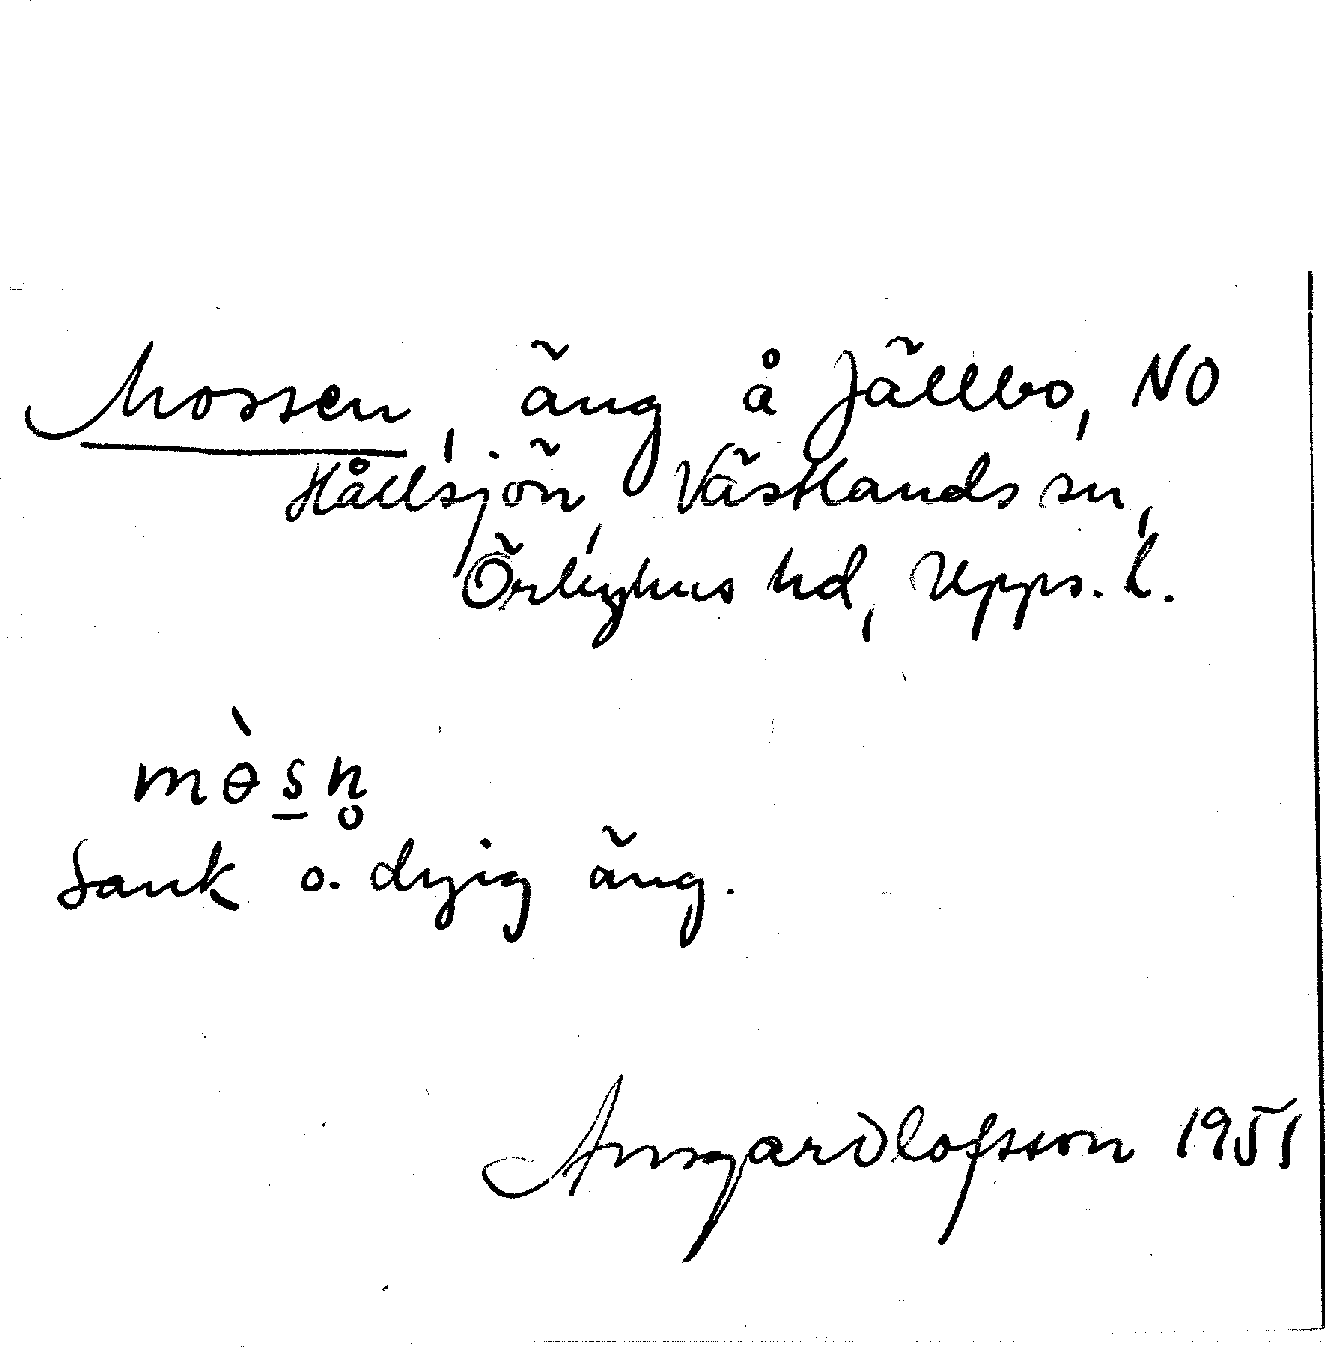 Mossen, äng å Jällbo, NO
Hållsjön, Västlands sn,
Örbyhus hd, Upps. l.
mɵ̀s̠n̥
Sank o. dyig äng.
Ansgar Olofsson 1951